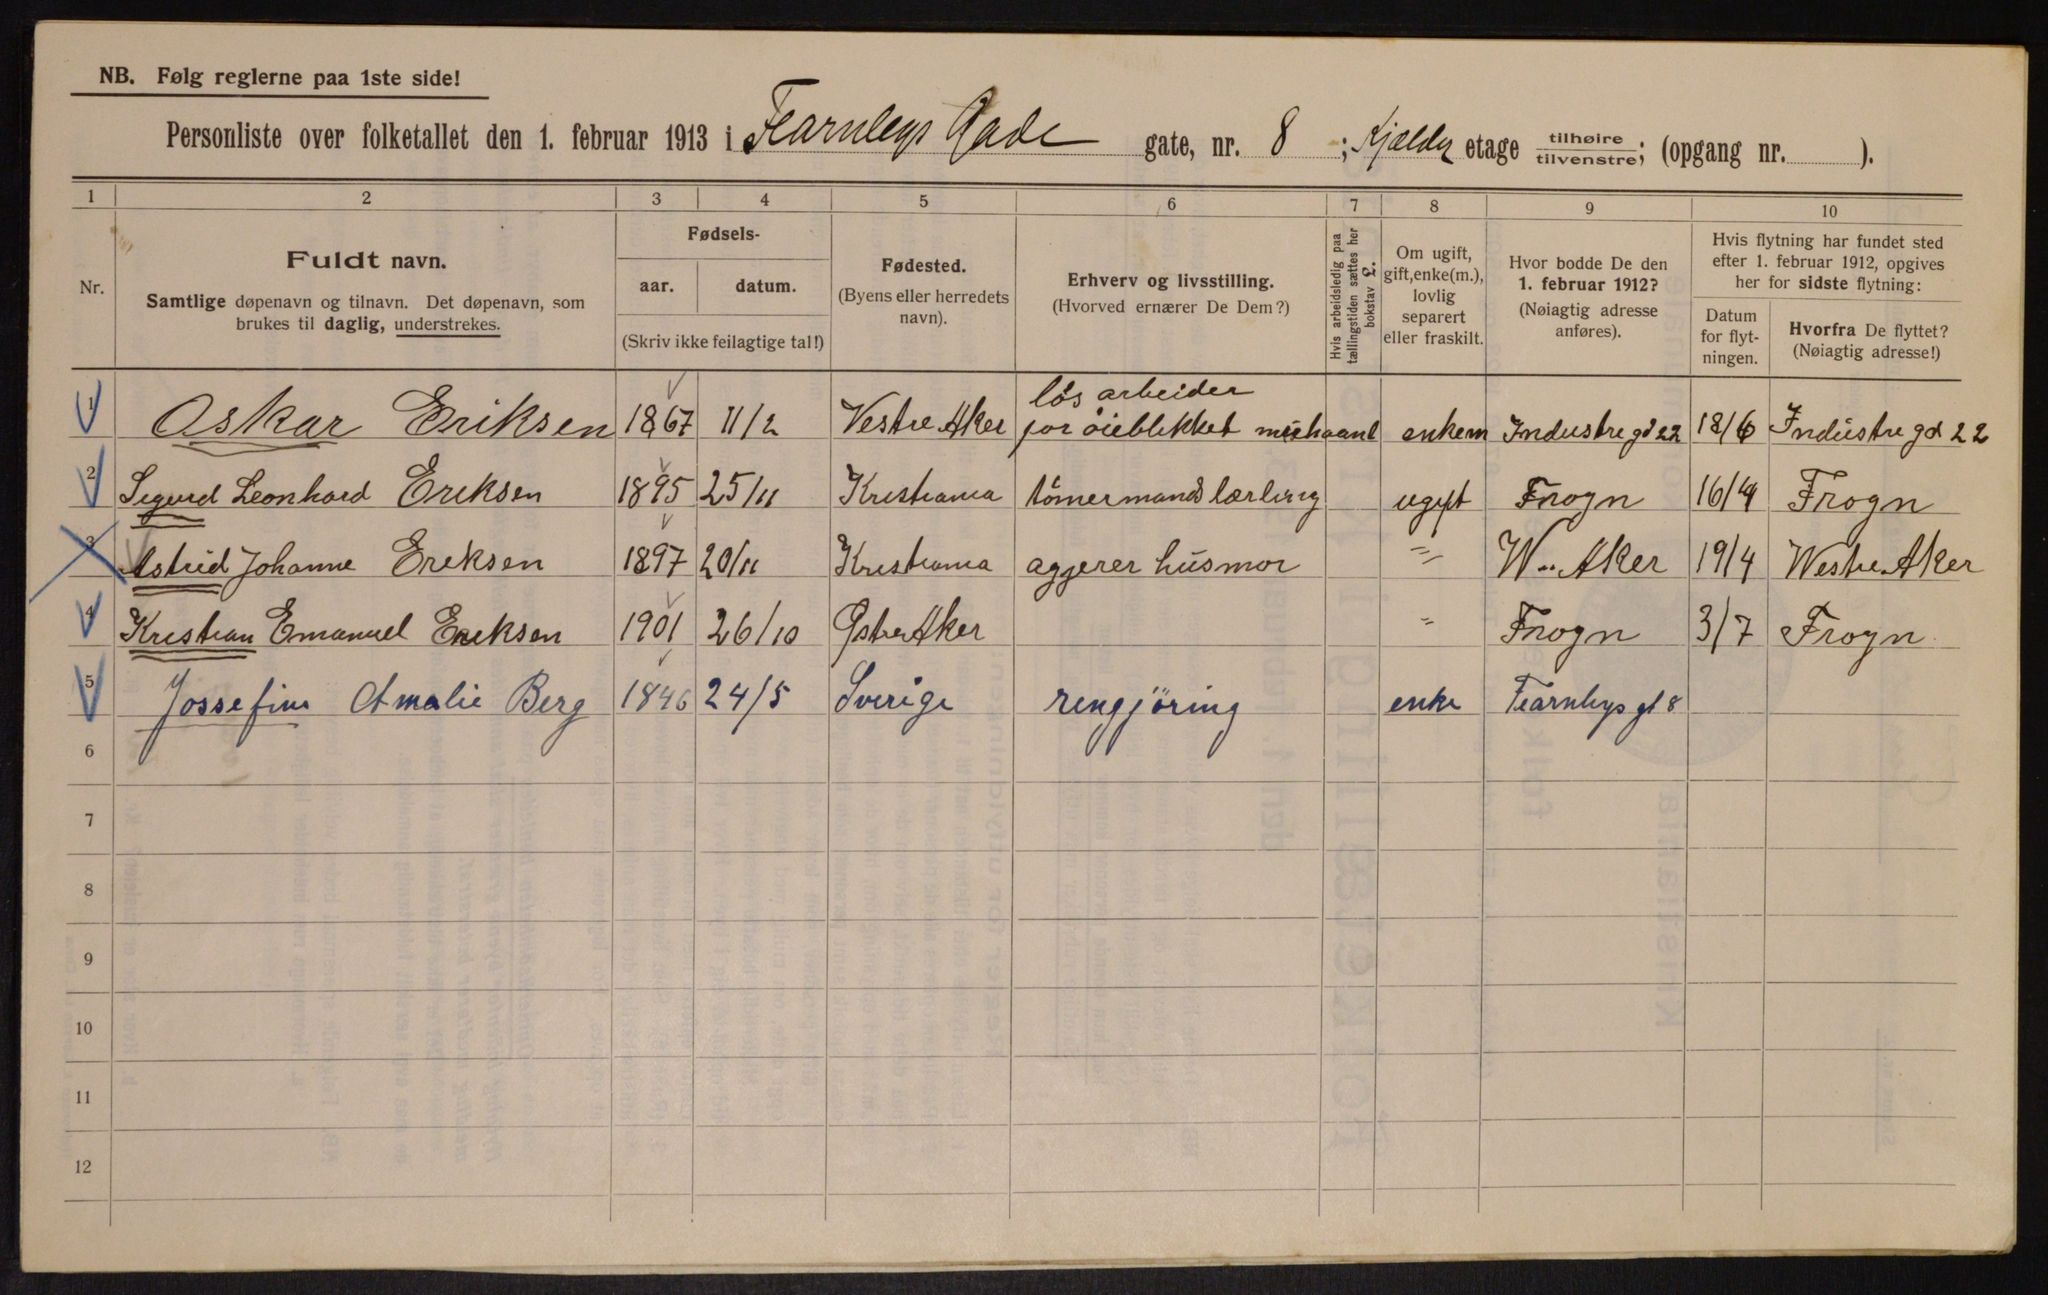 NB. Følg reglerne paa 1ste side!
Personliste over folketallet den 1. februar 1913 i Fearnleys Gade gate, nr. 8 ; Kjelder etage tilhøire / tilvenstre; (opgang nr. ).
1 2 3 4 5 6 7 8 9 10
Nr.
Fuldt navn.
Samtlige døpenavn og tilnavn. Det døpenavn, som
brukes til daglig, understrekes.
Fødsels-
aar. datum.
(Skriv ikke feilagtige tal!)
Fødested.
(Byens eller herredets
navn).
Erhverv og livsstilling.
(Hvorved ernærer De Dem?)
Hvis arbeidsledig paa
tællingstiden sættes her
bokstav L.
Om ugift,
gift, enke(m.),
lovlig
separert
eller fraskilt.
Hvor bodde De den
1. februar 1912?
(Nøiagtig adresse
anføres).
Hvis flytning har fundet sted
efter 1. februar 1912, opgives
her for sidste flytning:
Datum
for flyt-
ningen.
Hvorfra De flyttet?
(Nøiagtig adresse!)
løs arbeider
1 Oskar Eriksen 1867 11/2 Vestre Aker for öieblikket enkem Industrigd 22 18/6 Industrigd 22
2 Sigurd Leonhard Eriksen 1895 25/11 Kristiania tömermandslærling ugift Frogn 16/4 Frogn
3 Astrid Johanne Eriksen 1897 20/11 Kristiania aggerer husmor " W. Aker 19/4 Westre Aker
4 Kristian Emanuel Eriksen 1901 26/10 Østre Aker " Frogn 3/7 Frogn
5 Jossefine Amalie Berg 1846 24/5 Sverige rengjöring enke Fearnleys gt 8
6
7
8
9
10
11
12